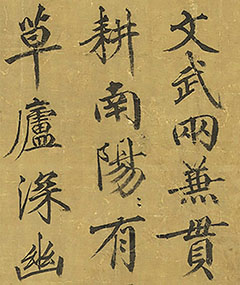 文武兩兼貫
耕南陽〻有
草廬深幽